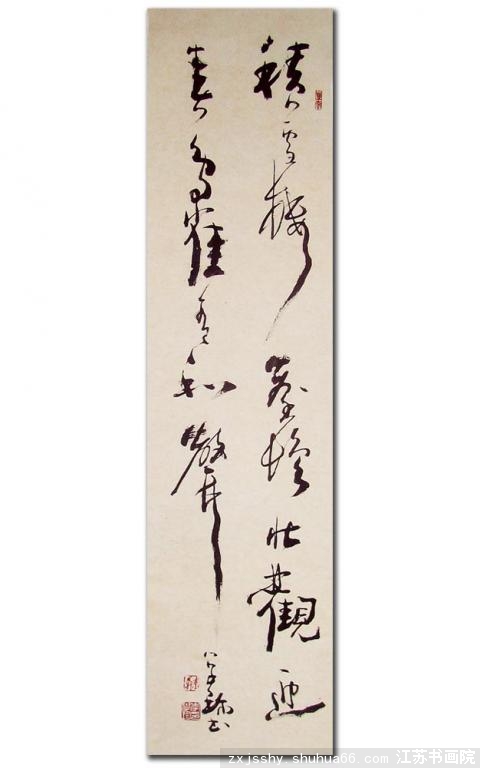 積雪樓臺增壯觀近
春鳥雀有和聲
zxjsshy.shuhua66.com 江苏书画院